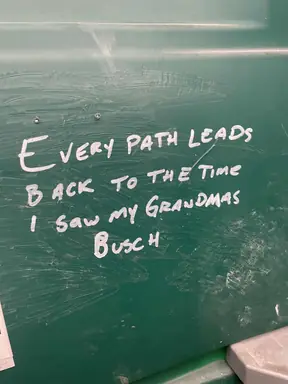 EVERY PATH LEADS
BACK TO THE TIME
I SAW MY GRANDMAS
BUSCH